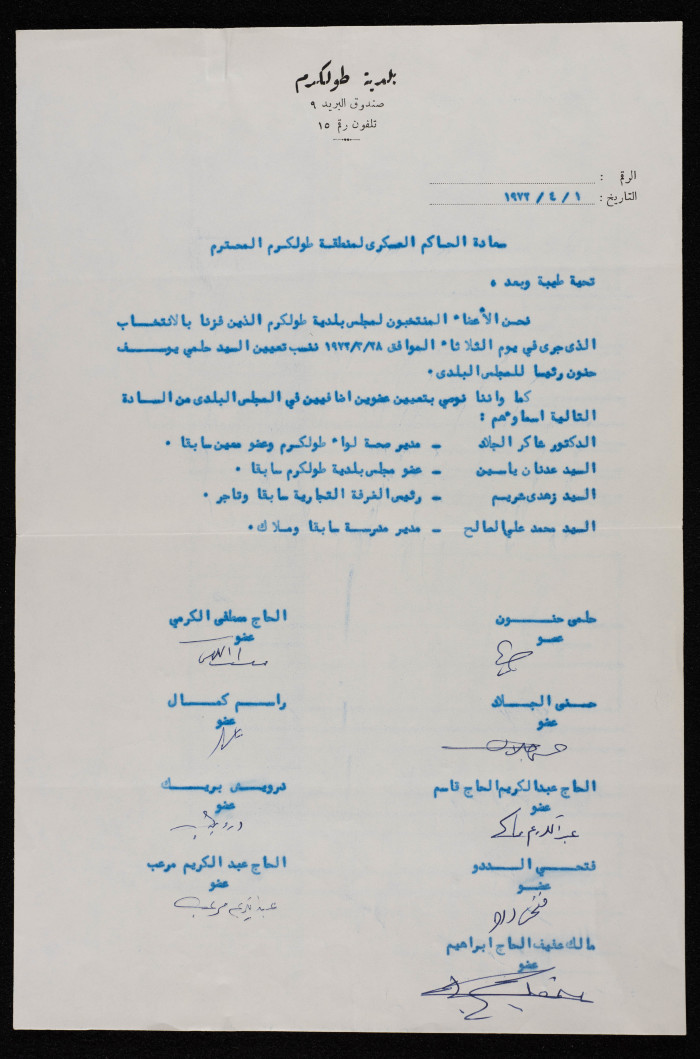 بلدية طولكرم
صندوق البريد ٩
تلفون رقم ١٥
الرقم :
التاريخ : ١ / ٤ / ١٩٧٢
سعادة الحاكم العسكرى لمنطقة طولكرم المحترم
تحية طيبة وبعد ،
نحن الأعضاء المنتخبون لمجلس بلدية طولكرم الذين فزنا بالانتخاب
الذى جرى في يوم الثلاثاء الموافق ١٩٧٢/٣/٢٨ ننسب تعيين السيد حلمي يوسف
حنون رئيسا للمجلس البلدى ٠
كما واننا نوصي بتعيين عضوين اضافيين في المجلس البلدى من السادة
التالية اسماؤهم :
الدكتور شاكر الجلاد – مدير صحة لواء طولكرم وعضو معين سابقا ٠
السيد عدنان ياسين – عضو مجلس بلدية طولكرم سابقا ٠
السيد زهدى عريم – رئيس الغرفة التجارية سابقا وتاجر ٠
السيد محمد علي الصالح – مدير مدرسة سابقا وملاك ٠
حلمى حنون
عضو
الحاج مصطفى الكرمي
عضو
حسنى الجلاد
عضو
راسم كمال
عضو
الحاج عبد الكريم الحاج قاسم
عضو
عبد الكريم
درويش بريك
عضو
درويش
فتحي الددو
عضو
فتحي ددو
الحاج عبد الكريم مرعب
عضو
عبد الكريم مرعب
مالك عفيف الحاج ابراهيم
عضو